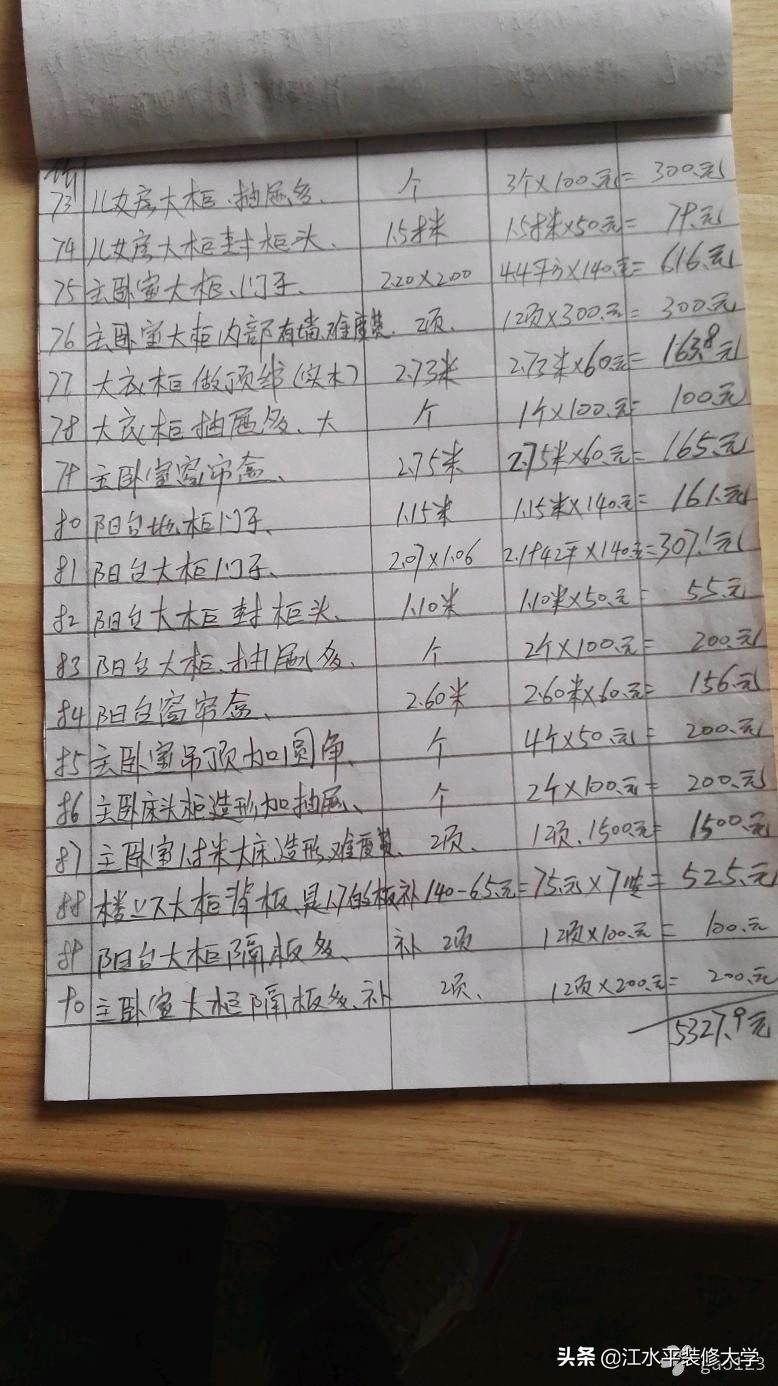 73 儿女房大柜、抽屉多、 个 3个×100元= 300元
74 儿女房大柜封柜头、 1.58米 1.58米×50元= 79元
75 主卧室大柜、门子、 2.20×2.00 4.4平方×140元= 616元
76 主卧室大柜内部有墙、难度费、 项 1项×300元= 300元
77 大衣柜做顶线(实木) 2.73米 2.73米×60元= 163.8元
78 大衣柜抽屉多、大 个 1个×100元= 100元
79 主卧室窗帘盒、 2.75米 2.75米×60元= 165元
80 阳台地柜门子、 1.15米 1.15米×140元= 161元
81 阳台大柜门子、 2.07×1.06 2.1942平×140元=307.1元
82 阳台大柜封柜头、 1.10米 1.10米×50元= 55元
83 阳台大柜、抽屉多、 个 2个×100元= 200元
84 阳台窗帘盒、 2.60米 2.60米×60元= 156元
85 主卧室吊顶加圆角、 个 4个×50元= 200元
86 主卧床头柜造形加抽屉、 个 2个×100元= 200元
87 主卧室1.8米大床、造形、难度费、 项、 1项、1500元= 1500元
88 楼上下大柜背板、是1.7的板补140-65元=75元×7 = 525元
89 阳台大柜隔板多、 补 项 1项×100元= 100元
90 主卧室大柜隔板多、补 项、 1项×200元= 200元
5327.9元
头条 @江水平装修大学
gao123